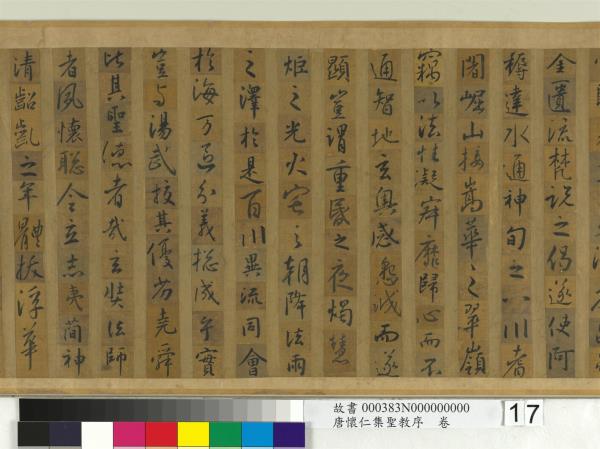 金匱流梵說之偈遂使阿
耨達水通神甸之八川耆
闍崛山接嵩華之翠嶺
竊以法性凝寂靡歸心而不
通智地玄奧感懇誠而遂
顯豈謂重昏之夜燭慧
炬之光火宅之朝降法雨
之澤於是百川異流同會
於海萬區分義總成乎實
豈與湯武挍其優劣堯舜
比其聖德者哉玄奘法師
者夙懷聰令立志夷簡神
清齠齔之年體拔浮華
故書 000383N000000000
唐懷仁集聖教序 卷
17